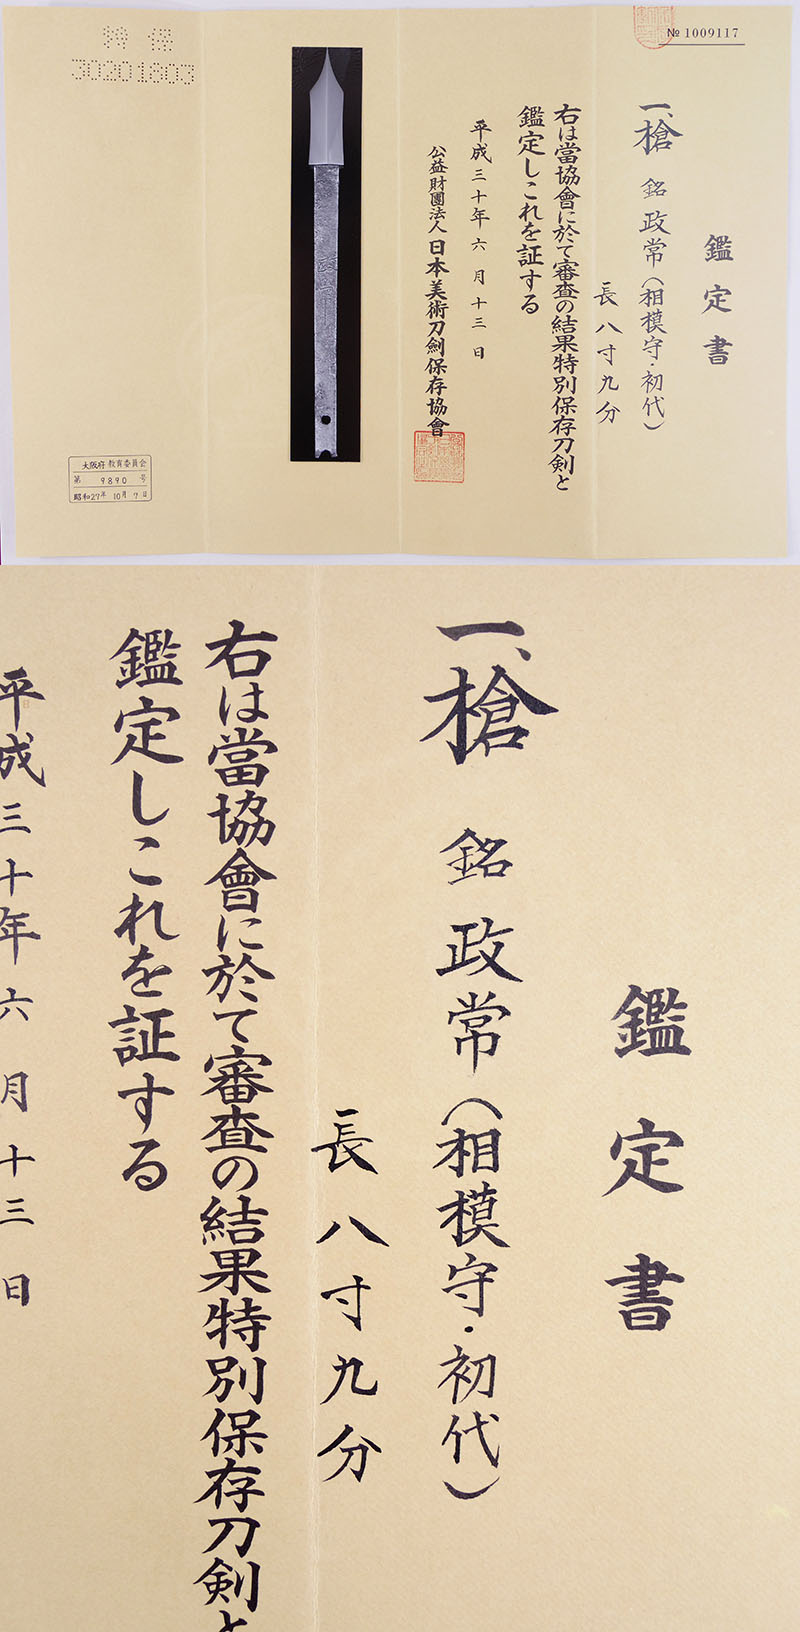 № 1009117
鑑定書
一、槍 銘 政常(相模守・初代)
長 八寸九分
右は當協會に於て審査の結果特別保存刀剣と
鑑定しこれを証する
平成三十年六月十三日
公益財團法人 日本美術刀劍保存協會
特 保
30201803
大阪府 教育委員会
第 9890 号
昭和27年 10月 7日
鑑定書
一、槍 銘 政常(相模守・初代)
長 八寸九分
右は當協會に於て審査の結果特別保存刀剣と
鑑定しこれを証する
平成三十年六月十三日